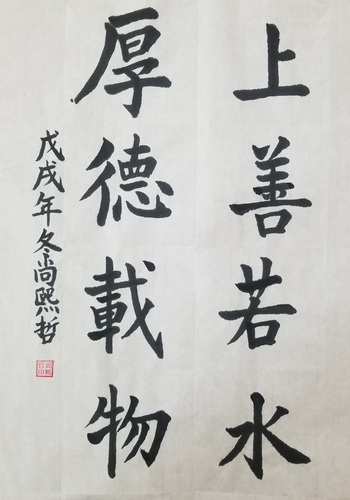 上善若水
厚德載物
戊戌年冬尚熙哲